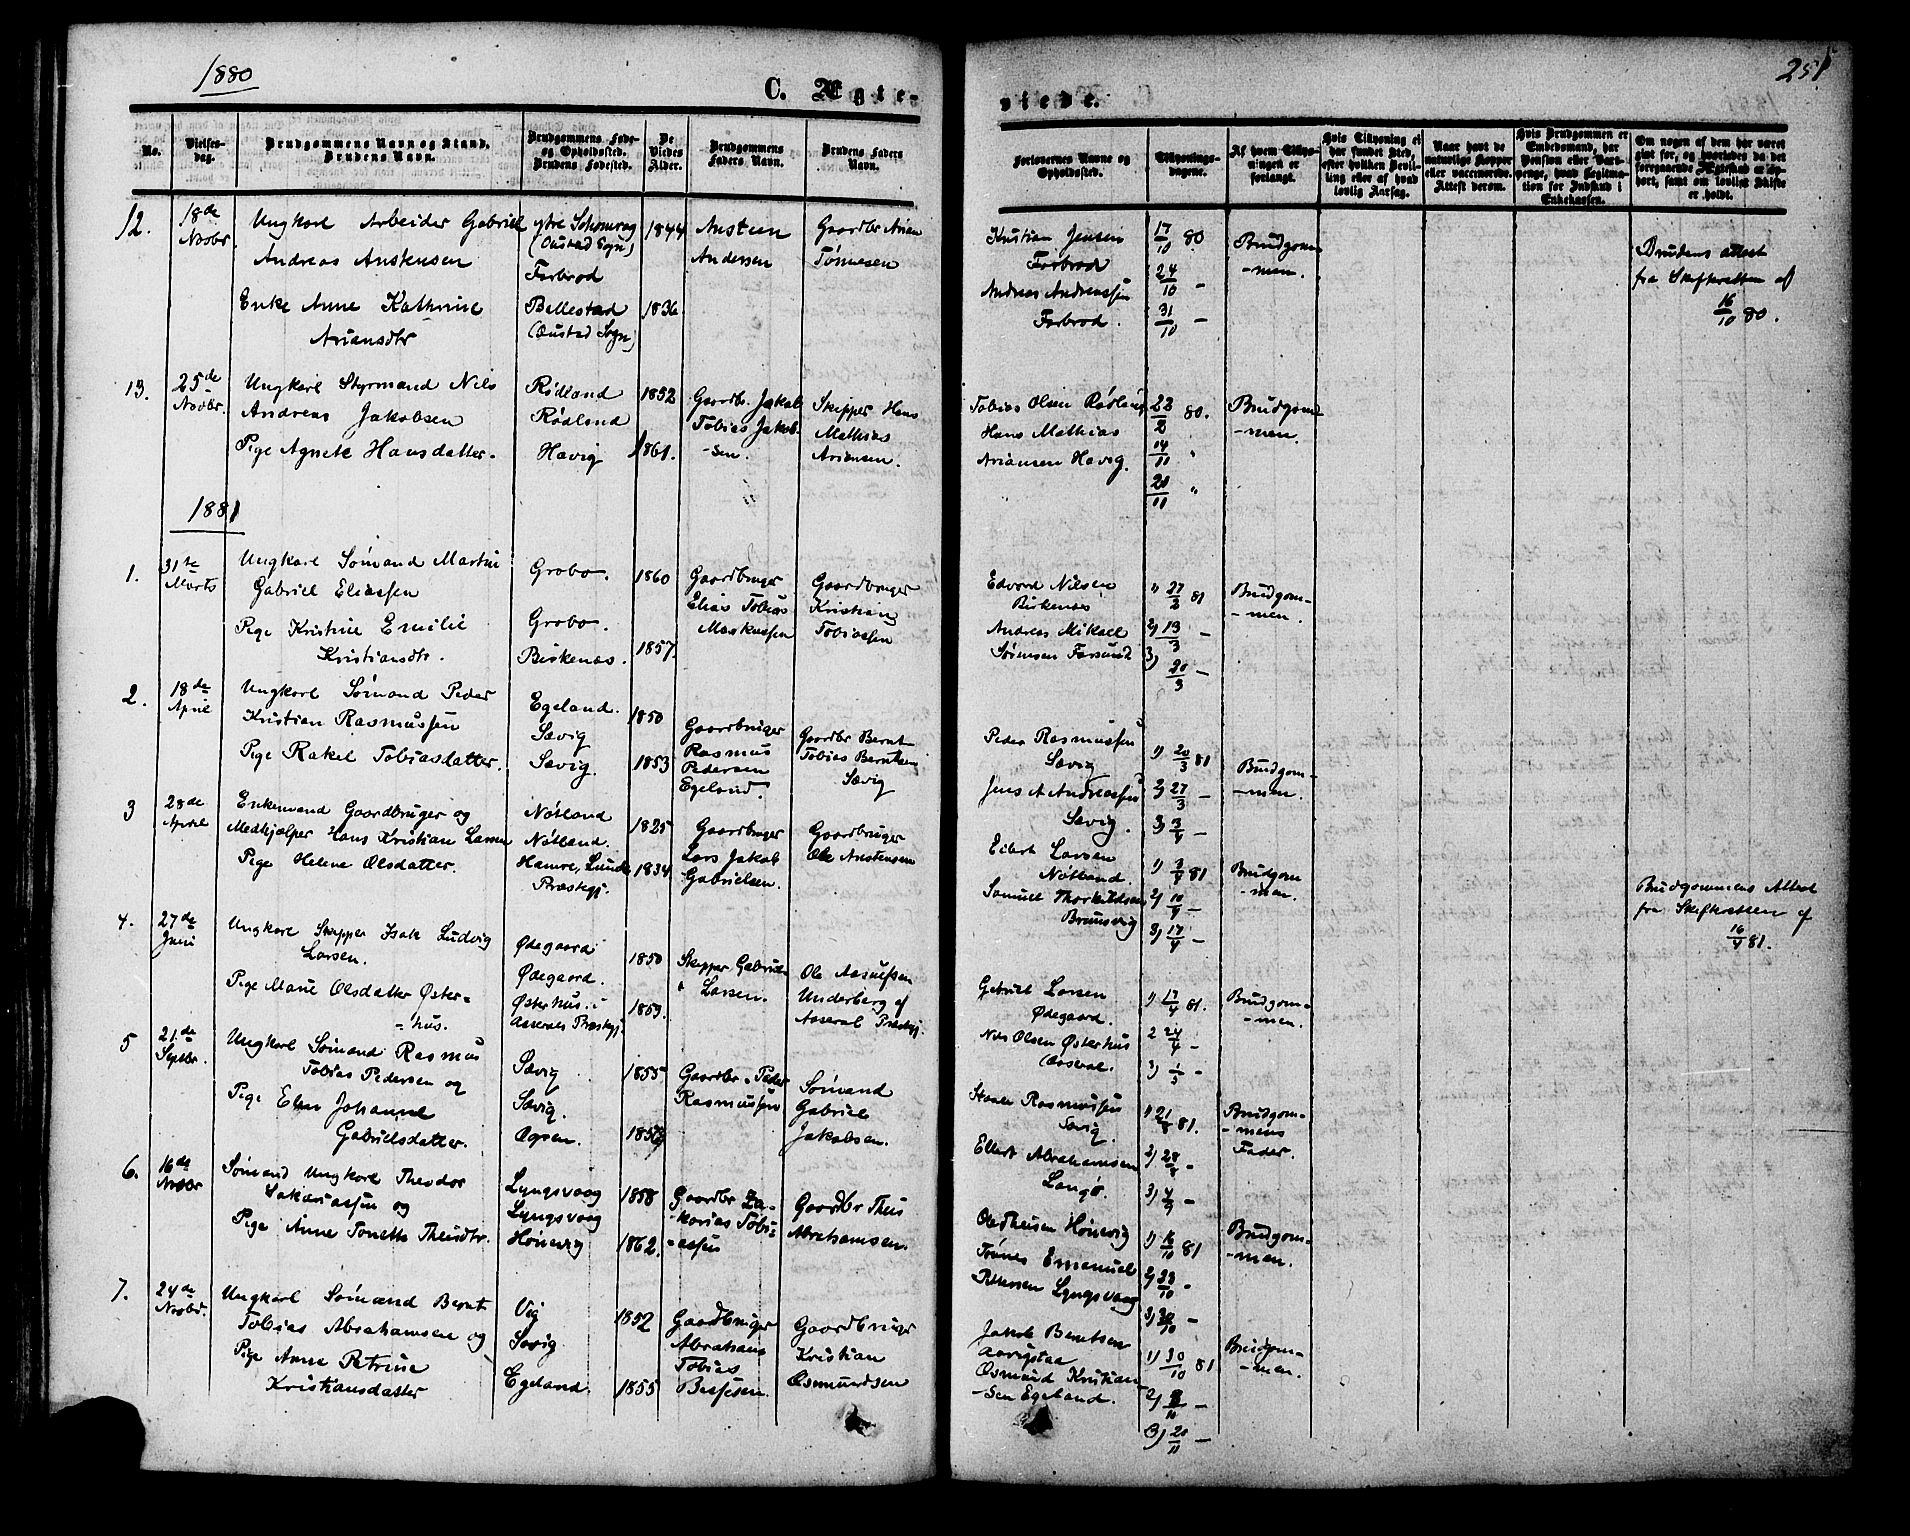 1880
C. Ægte-
No.
Vielses-dag.
Brudgommens Navn og Stand,
Brudens Navn.
Brudgommens Føde-
og Opholdssted.
Brudens Fødested.
De
Viedes
Alder.
Brudgommens
Faders Navn.
Brudens Faders
Navn.
12.
18de
Novbr
Ungkarl Arbeider Gabriel
Andreas
Enke Anne Kathrine
Ariansdtr
ytre
(Oustad Sogn)
Farbrod
Bellestad
(Oustad Sogn)
1844
1836
Austen
Andersen
Gaardbr Arian
Tønnesen
13.
25de
Novbr.
Ungkarl Styrmand Nils
Andreas Jakobsen
Pige Agnete Hansdatter.
Rødland
Rødland
Havig
1852
1861.
Gaardbr. Jakob
Tobias Jakob-
sen.
Skipper Hans
Mathias
Ariansen.
1881
1.
31te
Marts
Ungkarl Sømand Martin
Gabriel Eliassen
Pige Kristine Emilie
Kristiansdtr.
Grobo.
Grobo.
Birkenæs.
1860
1857.
Gaardbruger
Elias Tobias
Markussen
Gaardbruger
Kristian
Tobiassen
2.
18de
April
Ungkarl Sømand Peder
Kristian Rasmussen
Pige Rakel Tobiasdatter.
Egeland.
Sævig
Sævig.
1850
1853
Gaardbruger
Rasmus
Pedersen
Egeland.
Gaardbr Bernt
Tobias Berntsen
Sævig
3
28de
April
Enkemand Gaardbruger og
Medhjælper Hans Kristian Larsen
Pige Helene Olsdatter.
Nøtland
Nøtland.
Hamre, Lunde
Præstegj.
1825
1834
Gaardbruger
Lars Jakob
Gabrielsen.
Gaardbruger
Ole Austensen
4.
27de
Juni
Ungkarl Skipper Isak Ludvig
Larsen.
Pige Marie Olsdatter Øster=
=hus.
Ødegaard
Ødegaard.
Østerhus
Aaserals Præstegj.
1850
1859.
Skipper Gabriel
Larsen.
Ole Aanensen
Underberg af
Aaseral Præstegj.
5
21de
Septbr.
Ungkarl Sømand Rasmus
Tobias Pedersen og
Pige Elen Johanne
Gabrielsdatter.
Sævig
Sævig.
Ogsen.
1855
Gaardbr. Peder
Rasmussen
Sømand
Gabriel
Jakobsen.
6.
16de
Novbr
Sømand Ungkarl Theodor
Sakariassen og
Pige Anne Tonette Theisdtr.
Lyngsvaag
Lyngsvaag
Hønevig
1858
1862.
Gaardbr Za-
-karias Tobi=
=assen
Gaardbr Theis
Abrahamsen.
7.
24de
Novbr.
Ungkarl Sømand Bernt
Tobias Abrahamsen og
Pige Anne Petrine
Kristiansdatter
Vig
Sævig
Egeland.
1852
1855
Gaardbruger
Abraham
Tobias
Berntsen.
Gaardbruger
Kristian
Osmundsen
251
viede.
Forlovernes Navne og
Opholdssted.
Tillysnings-
dagene.
Af hvem Tillys-
ningen er
forlangt.
Hvis Tillysning ei
har fundet Sted,
efter hvilken Bevil-
ling eller af hvad
lovlig Aarsag.
Naar havt de
naturlige Kopper
eller vaccinerede.
Attest derom.
Hvis Brudgommen er
Embedsmand, har
Pension eller Vart-
penge, hvad Legitima-
tion for Indskud i
Enkekassen.
Om nogen af dem har været
gift før, og hvorledes da det
foregaaende Ægteskab er op-
hørt, samt om lovligt Skifte
er holdt.
Kristian Jensen
Farbrod
Andreas Andreassen
Farbrod.
17/10 80
24/10 -
31/10 -
Brudgom-
-men.
Brudens attest
fra Skifteretten af
16/10 80.
Tobias Olsen Rødland
Hans Mathias
Ariansen Havig.
22/2 80.
14/11 "
20/11 "
Brudgom-
-men.
Edvard Nilsen
Birkenæs
Andreas Mikael
Sørensen Farsund
1) 27/2 81
2) 13/3 -
3) 20/3 -
Brudgom-
-men.
Peder Rasmussen
Sævig
Jens A Andreassen
Sævig.
1) 20/3 81
2) 27/3 -
3) 3/4 -
Brudgom-
-men.
Eilert Larsen
Nøtland.
Samuel Thorkildsen
Brunsvig
1) 3/4 81
2) 10/4 -
3) 17/4 -
Brudgom
-men.
Brudgommens Attest
fra Skifteretten af
16/4 81.
Gabriel Larsen
Ødegaard.
Nils Olsen Østerhus
Aaseral.
1) 17/4 81.
2 24/4 -
3) 1/5 -
Brudgom-
-men.
Rasmussen
Sævig.
Ellert Abrahamsen
Langø.
1) 21/8 81.
2) 28/8 -
3) 4/9 -
Brudgom-
-mens
Fader.
Ole Theisen Hønevig
Tønnes Emanuel
Pettersen Lyngsvaag
1) 16/10 81
2) 23/10 -
3) 30/10 -
Brudgom-
-men.
Jakob Berntsen
Osmund Kristian-
-sen Egeland.
1) 30/10 81
3) 20/11 -
Brudgom-
-men.